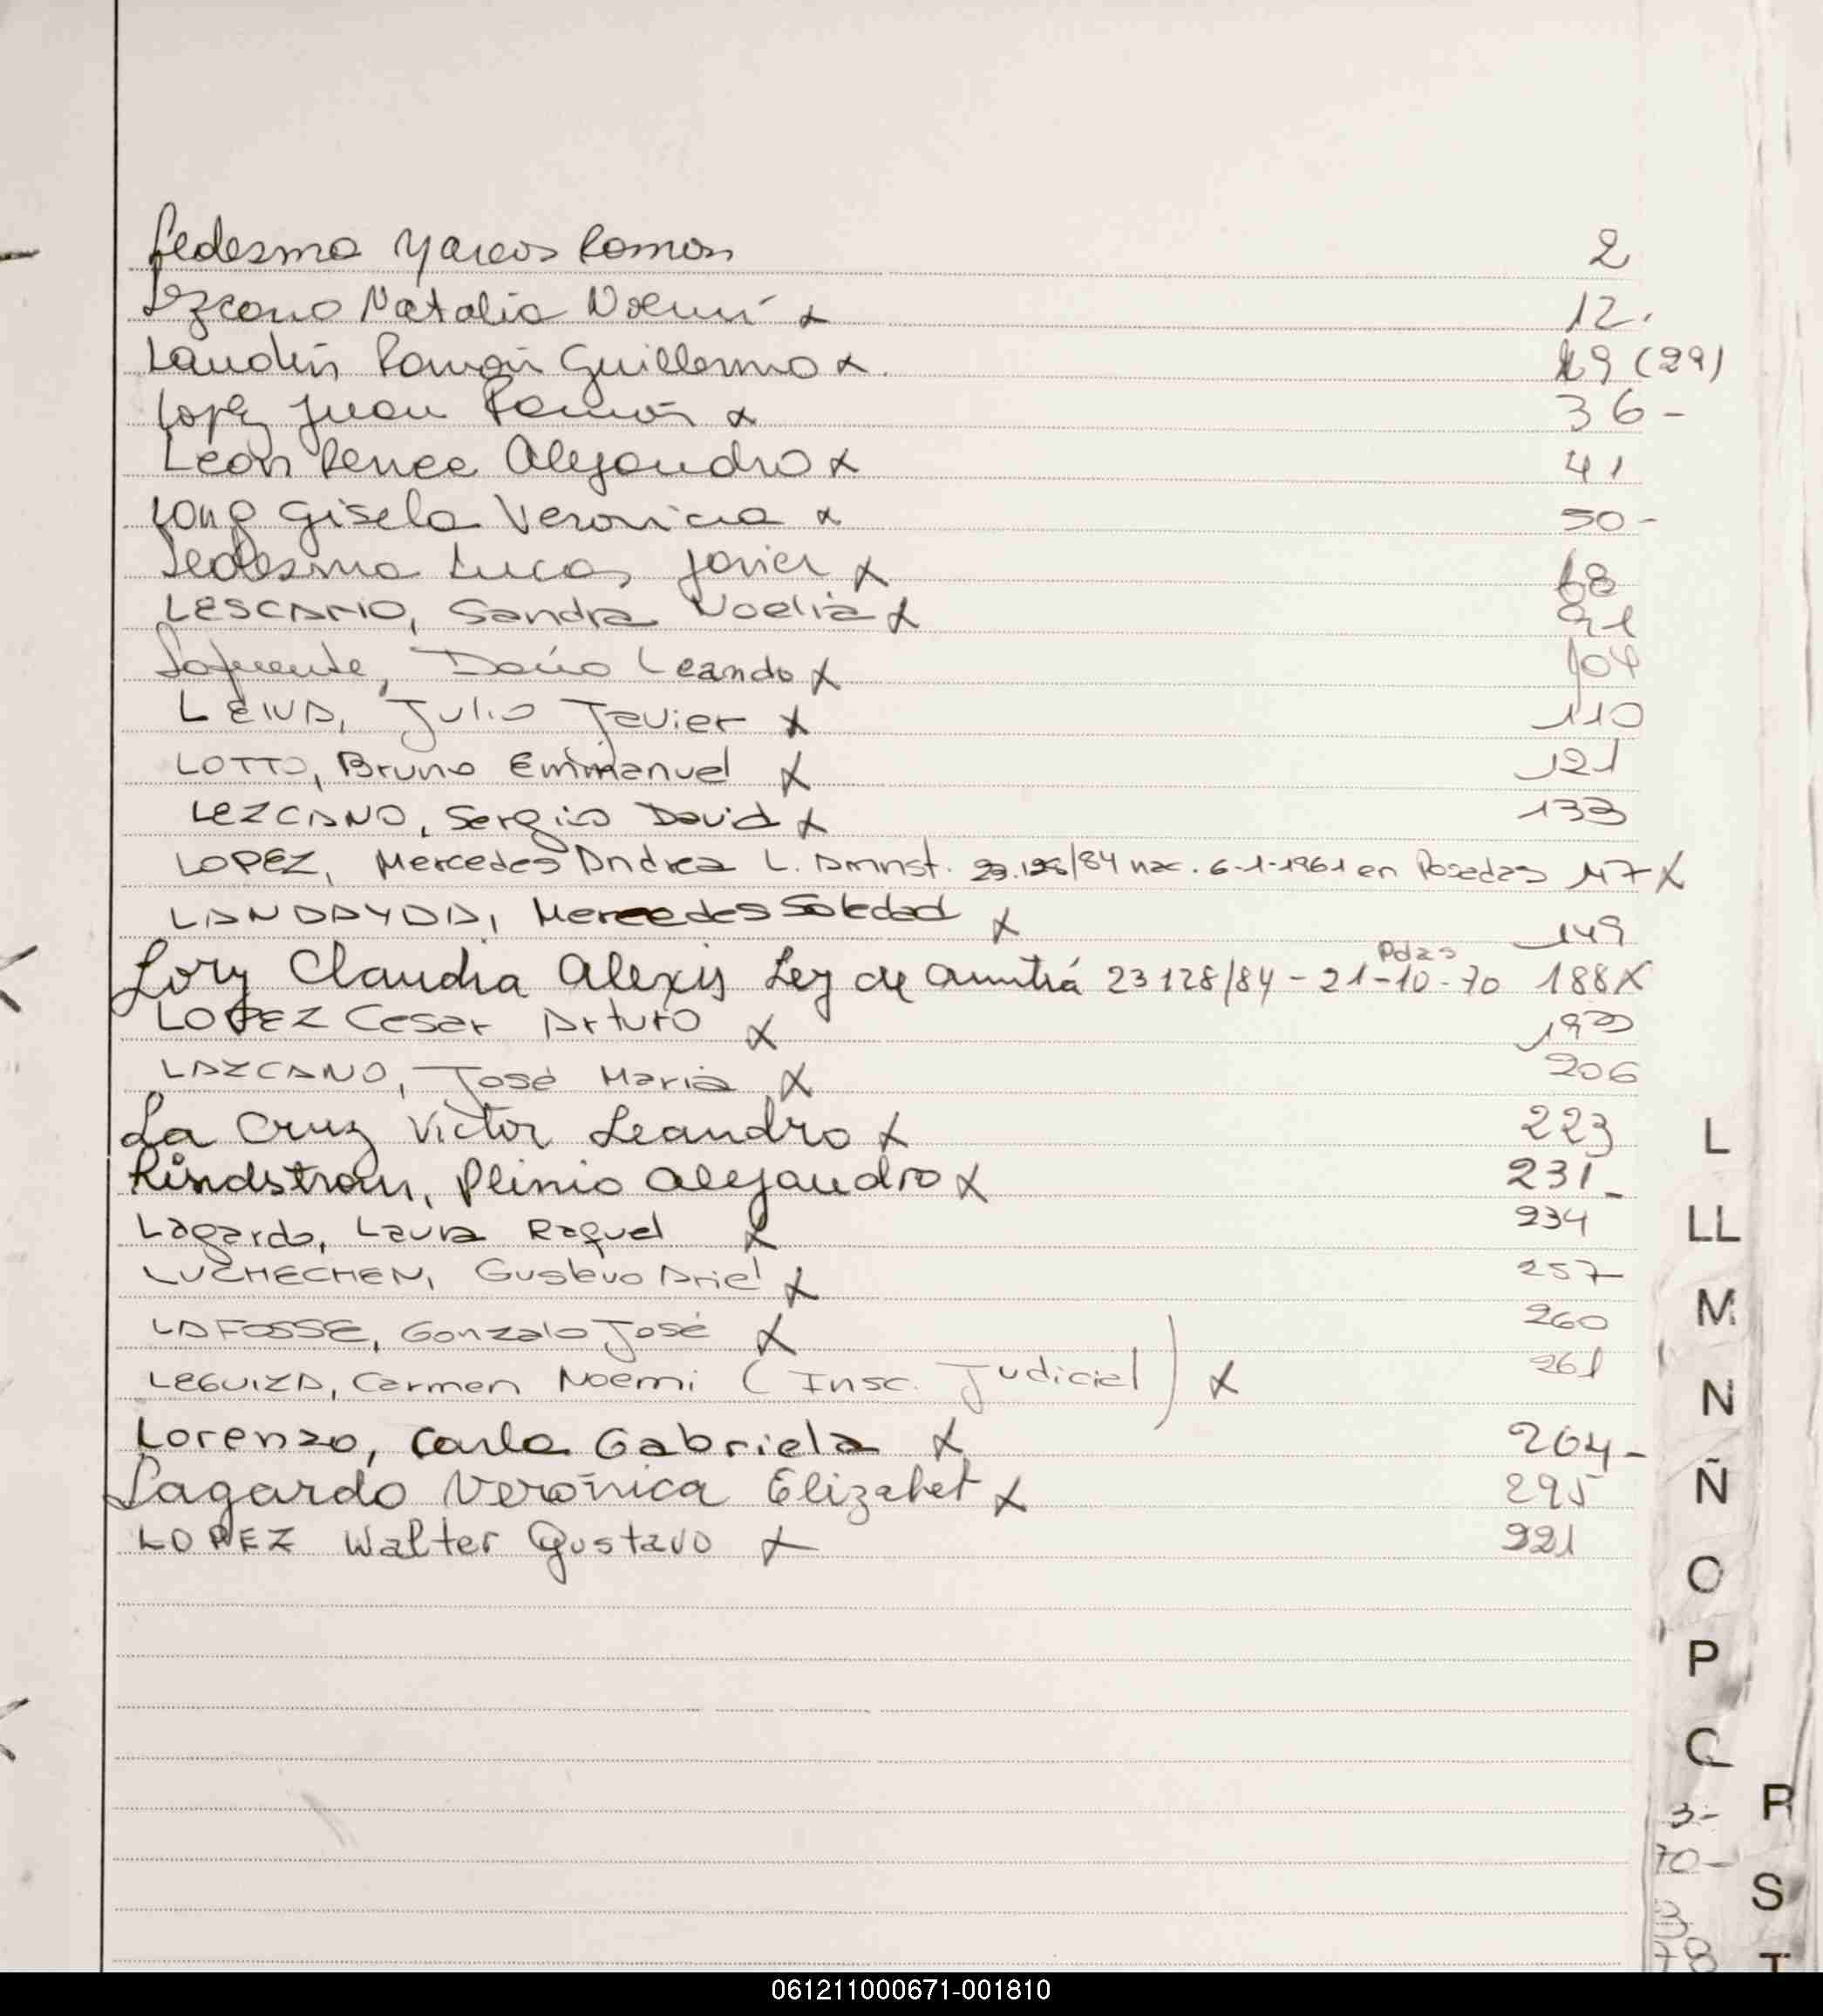 Ledesma Marcos Ramon 2
Lezcano Natalia Noemí x 12.
Landin Ramón Guillermo x. 29 (29)
Lopez Juan Ramón x 36-
León Renee Alejandro x 41
Long Gisela Veronica x 50-
Ledesma Lucas Javier x 68
LESCANO, Sandra Noelia x 91
Lafuente, Darío Leando x 104
LEIVA, Julio Javier x 110
LOTTO, Bruno Emmanuel x 121
LEZCANO, Sergio David x 133
LOPEZ, Mercedes Andrea L. Amnst. 23.128/84 nac. 6-1-1961 en Posadas 147 x
LANDAYDA, Mercedes Soledad x 149
Pdas
Lory Claudia Alexis Ley de Amnitiá 23128/84 - 21-10-70 188 x
LOPEZ Cesar Arturo x
LAZCANO, José María x 206
La Cruz Victor Leandro x 223
Lindstron, Plinio Alejandro x 231-
Lagardo, Laura Raquel x 234
LUCHECHEN, Gustavo Ariel x 257
LAFOSSE, Gonzalo José x 260
LEGUIZA, Carmen Noemi (Insc. Judicial) x 261
Lorenzo, Carla Gabriela x 264-
Lagardo Verónica Elizabet x 295
LOPEZ Walter Gustavo x 321
L
LL
M
N
Ñ
O
P
Q
R
3-
70-
S
3
78
T
061211000671-001810